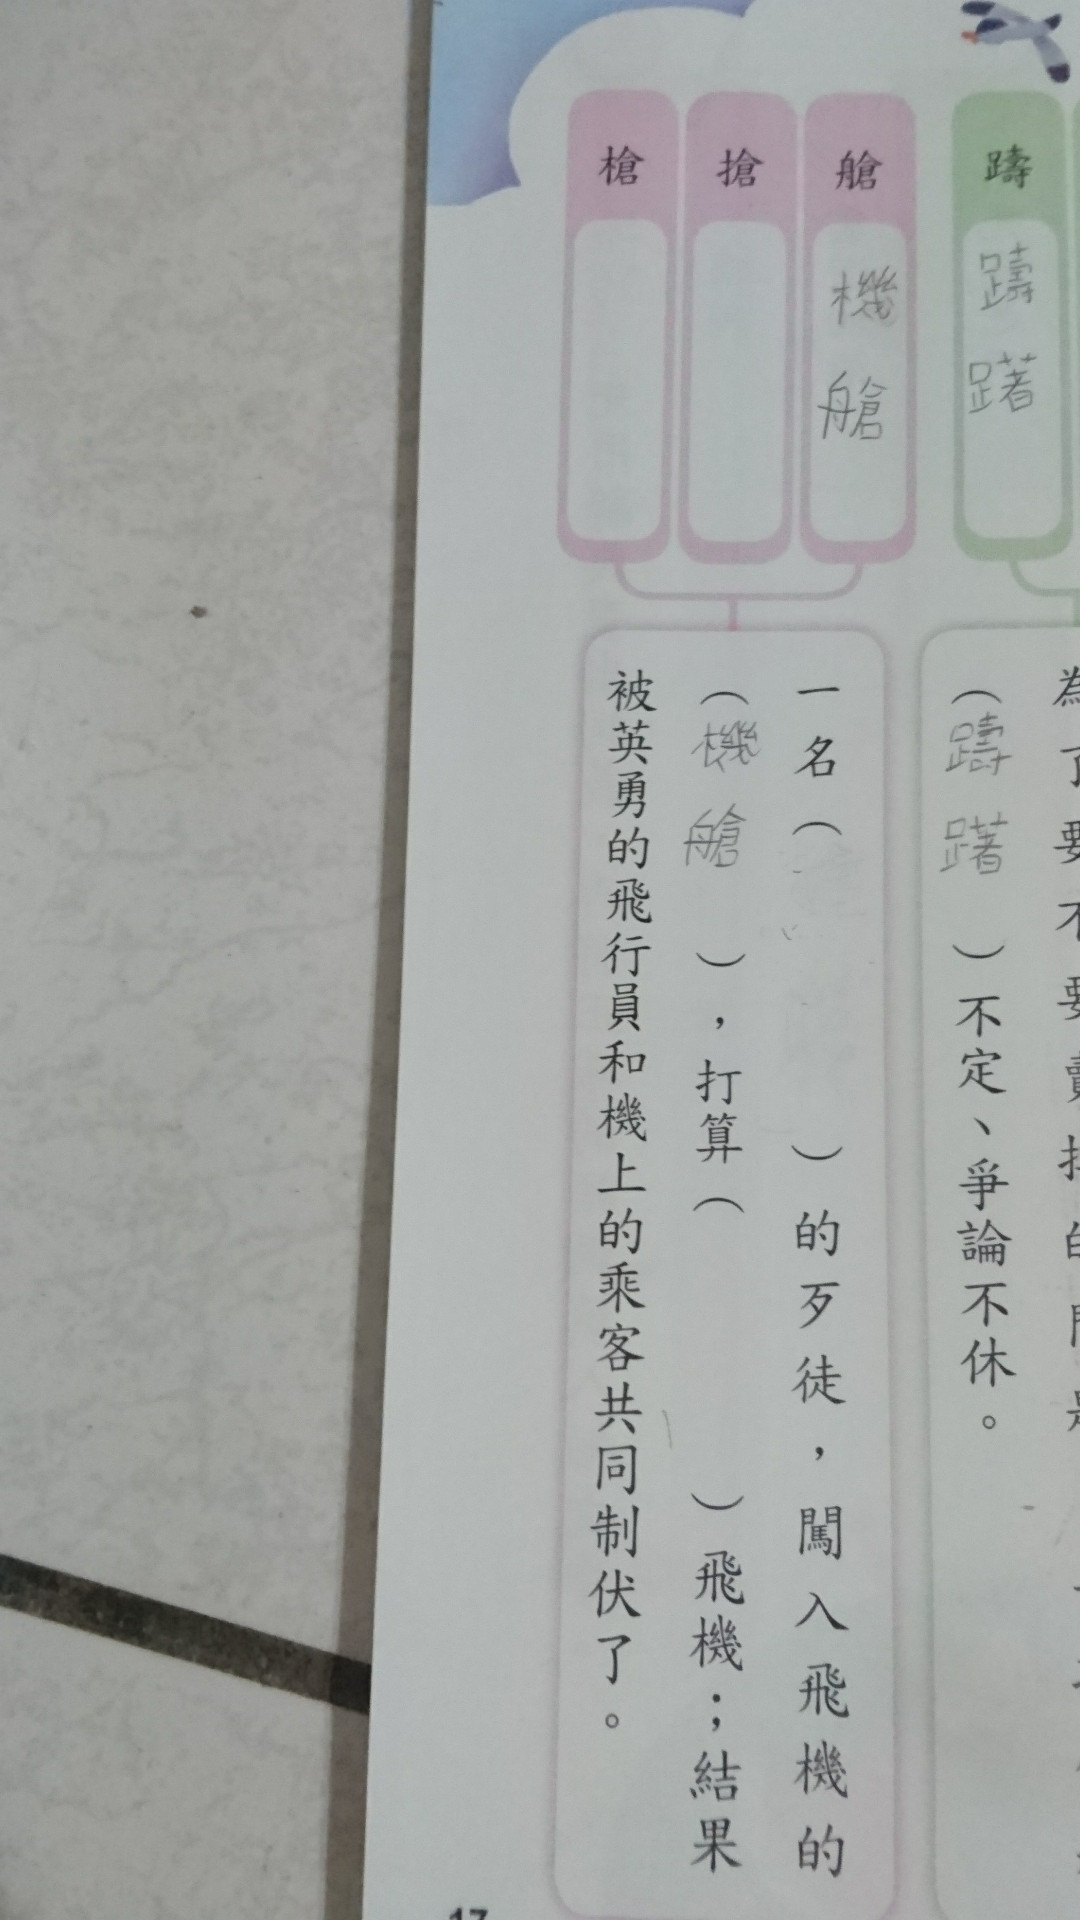 躊
躊躇
艙
機艙
搶
槍
(躊躇)不定、爭論不休。
一名(　　)的歹徒，闖入飛機的
(機艙)，打算(　　)飛機；結果
被英勇的飛行員和機上的乘客共同制伏了。
17